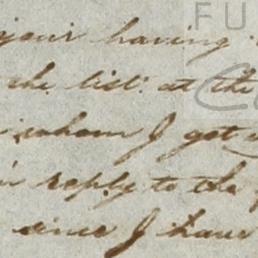 FU
your having
the list at the
whom I get
in reply to the
since I have